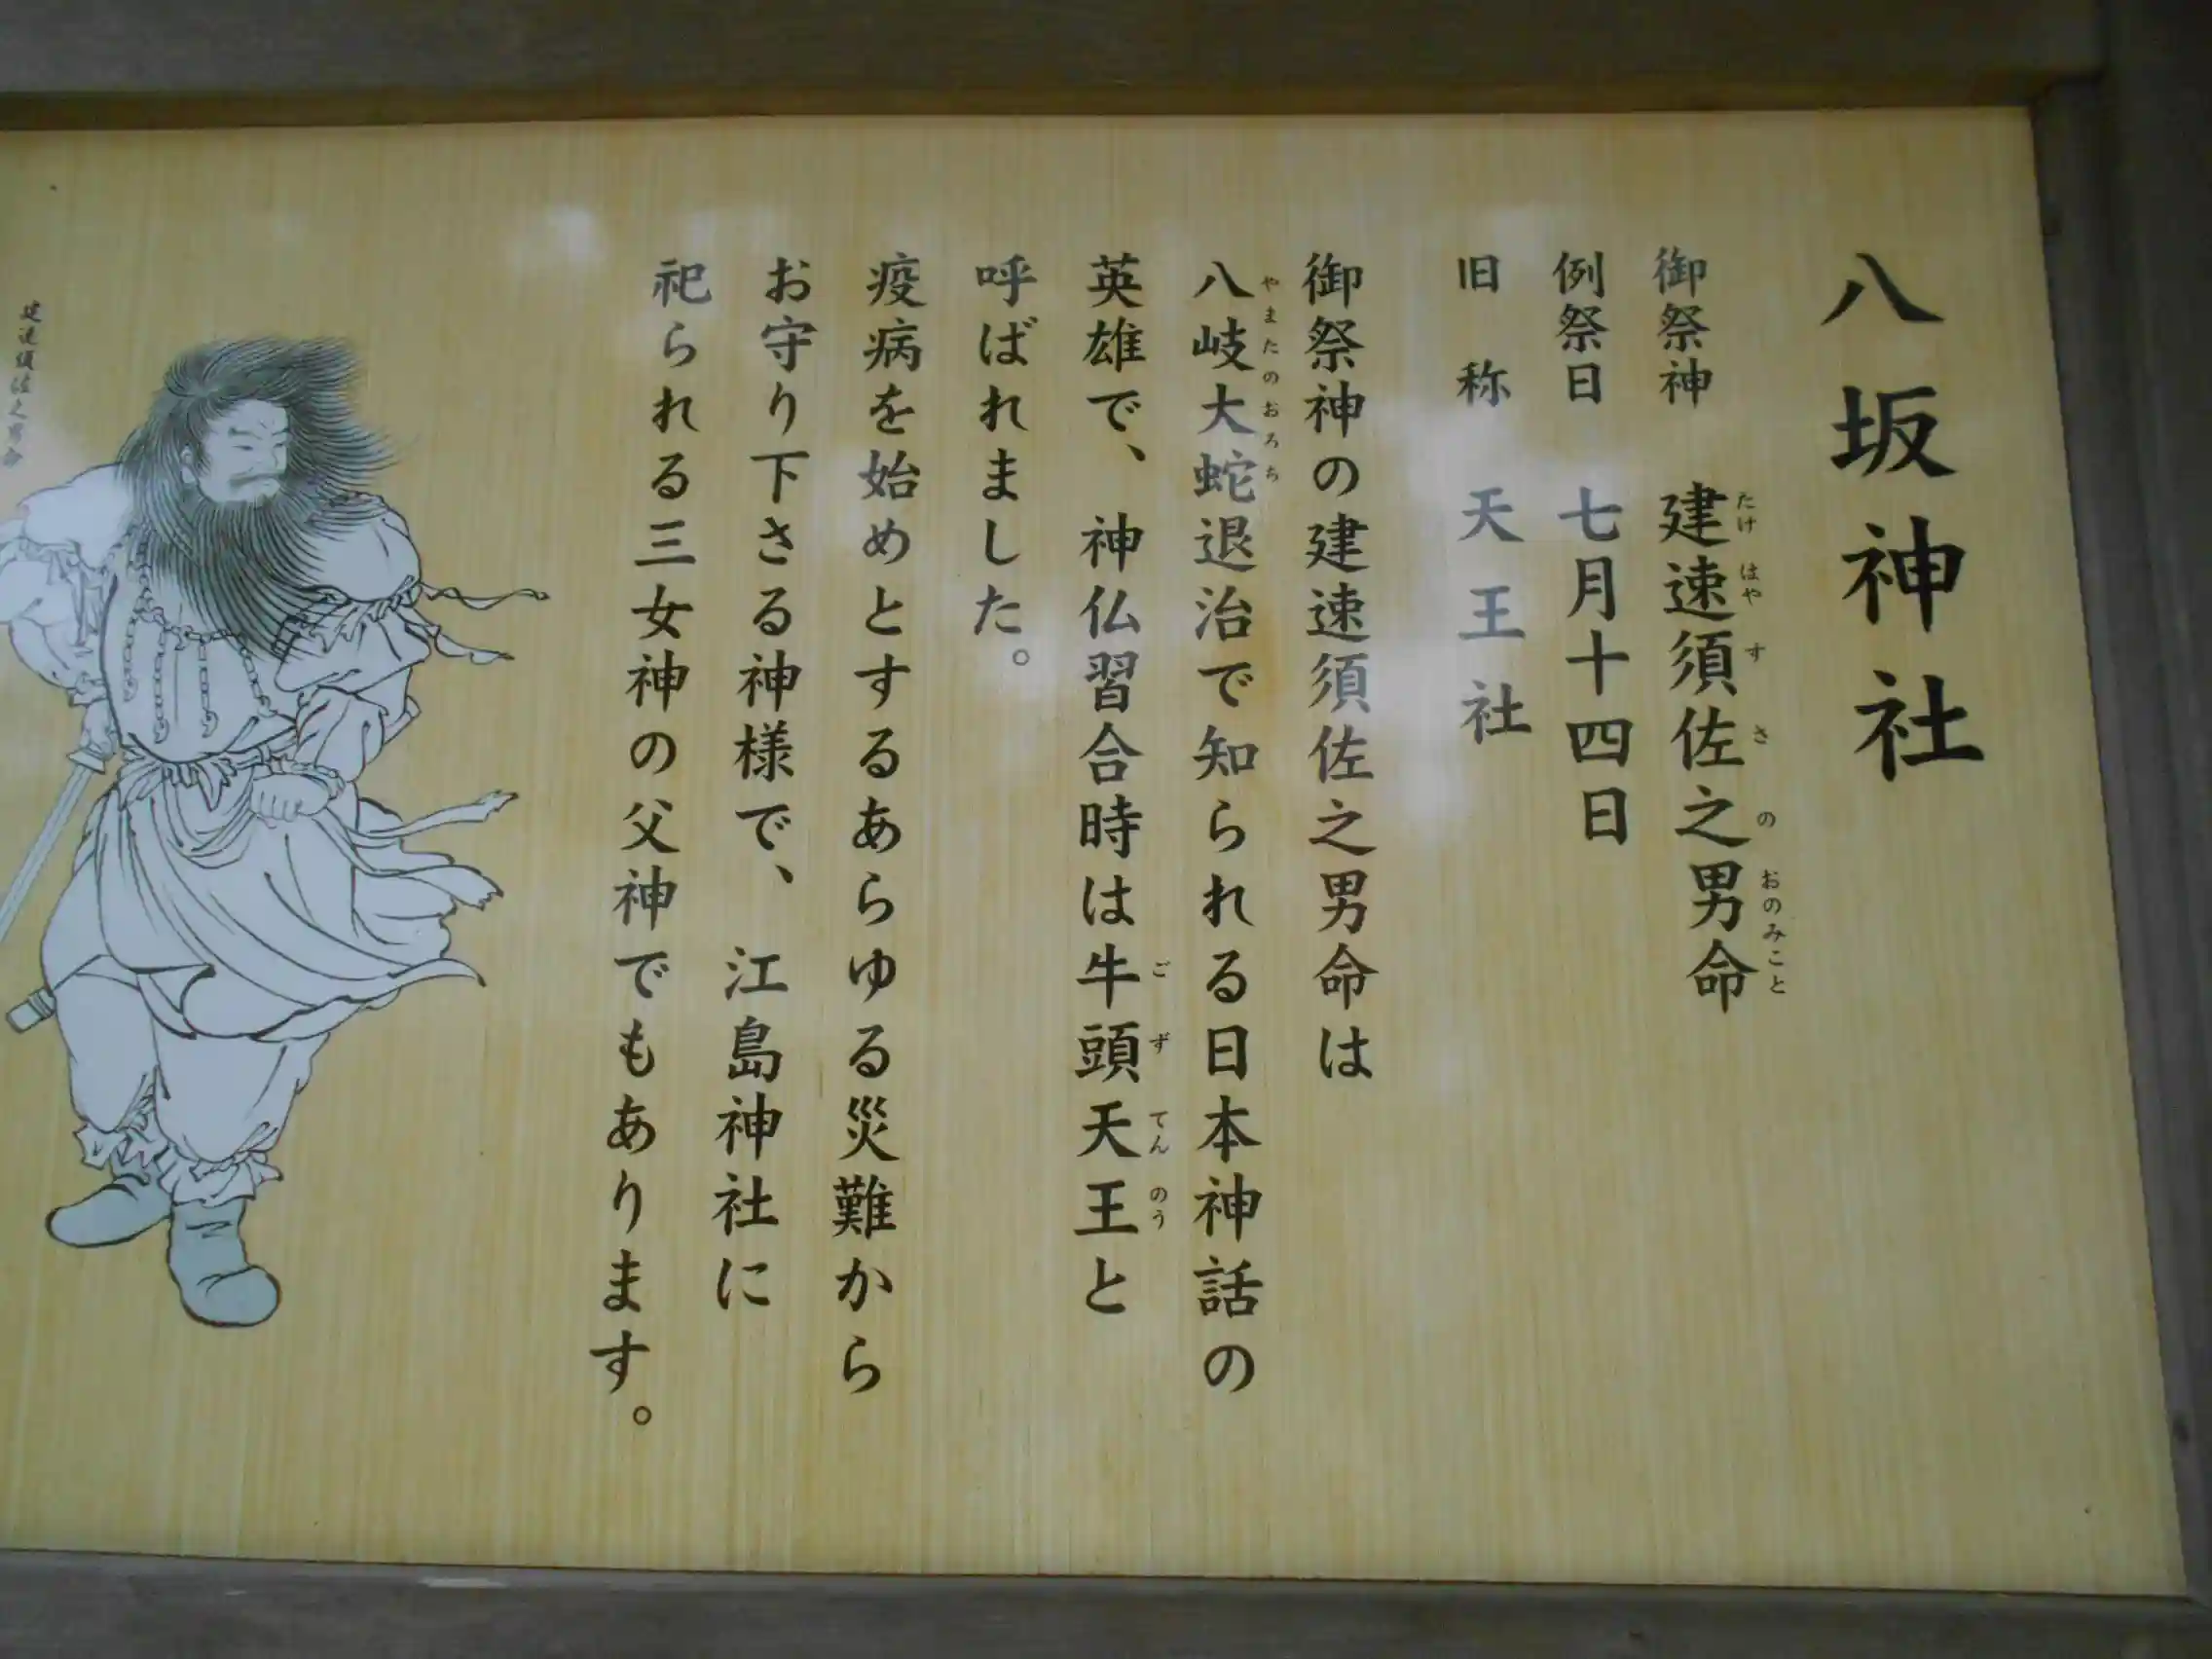 八坂神社
御祭神 建速須佐之男命
たけ はや す さ の おのみこと
例祭日 七月十四日
旧称 天王社
御祭神の建速須佐之男命は
八岐大蛇退治で知られる日本神話の
やまたのおろち
英雄で、神仏習合時は牛頭天王と
ご ず てん のう
呼ばれました。
疫病を始めとするあらゆる災難から
お守り下さる神様で、江島神社に
祀られる三女神の父神でもあります。
建速須佐之男命